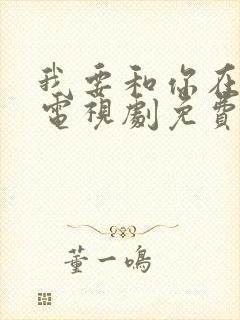 我要和你在
電視劇免費
董一鳴